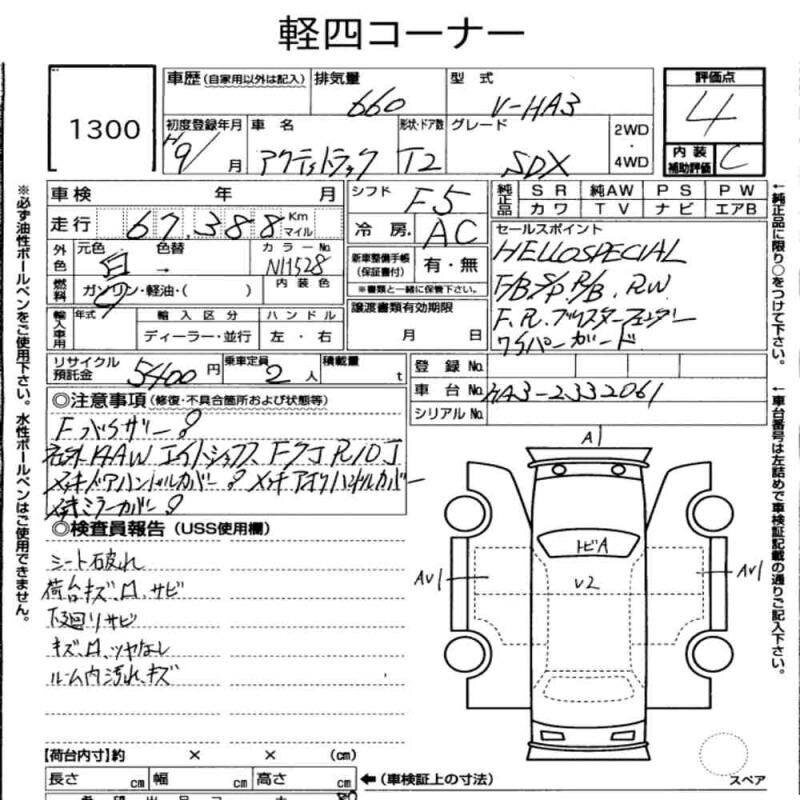 軽四コーナー
1300
車歴(自家用以外は記入)
排気量
660
型式
V-HA3
評価点
4
初度登録年月
H9/ 月
車名
アクティトラック
形状・ドア数
T2
グレード
SDX
2WD
・
4WD
内装
補助評価
C
車検 年 月
シフト
F5
純正品
SR 純AW PS PW
カワ TV ナビ エアB
走行 67,388 Km
マイル
冷房
AC
セールスポイント
HELLO SPECIAL
F/B S/P R/B. RW
F.R.ブリスターフェンダー
ワイパーガード
外色
元色 白
色替 →
カラーNo.
NH528
新車整備手帳
(保証書付)
有・無
※書類と一緒に保管下さい。
燃料
ガソリン・軽油・( )
内装色
輸入車用
年式
輸入区分
ディーラー・並行
ハンドル
左・右
譲渡書類有効期限
月 日
リサイクル
預託金
5400円
乗車定員
2人
積載量
t
登録No.
車台No.
HA3-2332061
シリアルNo.
◎注意事項(修復・不具合箇所および状態等)
◎検査員報告(USS使用欄)
シート破れ
荷台キズ、凹、サビ
下廻りサビ
キズ、凹、ツヤなし
ルーム内汚れ、キズ
A1
トビA
V2
AV1
AV1
スペア
【荷台内寸】約 × × (cm)
長さ cm 幅 cm 高さ cm
←(車検証上の寸法)
※必ず油性ボールペンをご使用下さい。水性ボールペンはご使用できません。
←純正品に限り○をつけて下さい。
←車台番号は左詰めで車検証記載の通りご記入下さい。